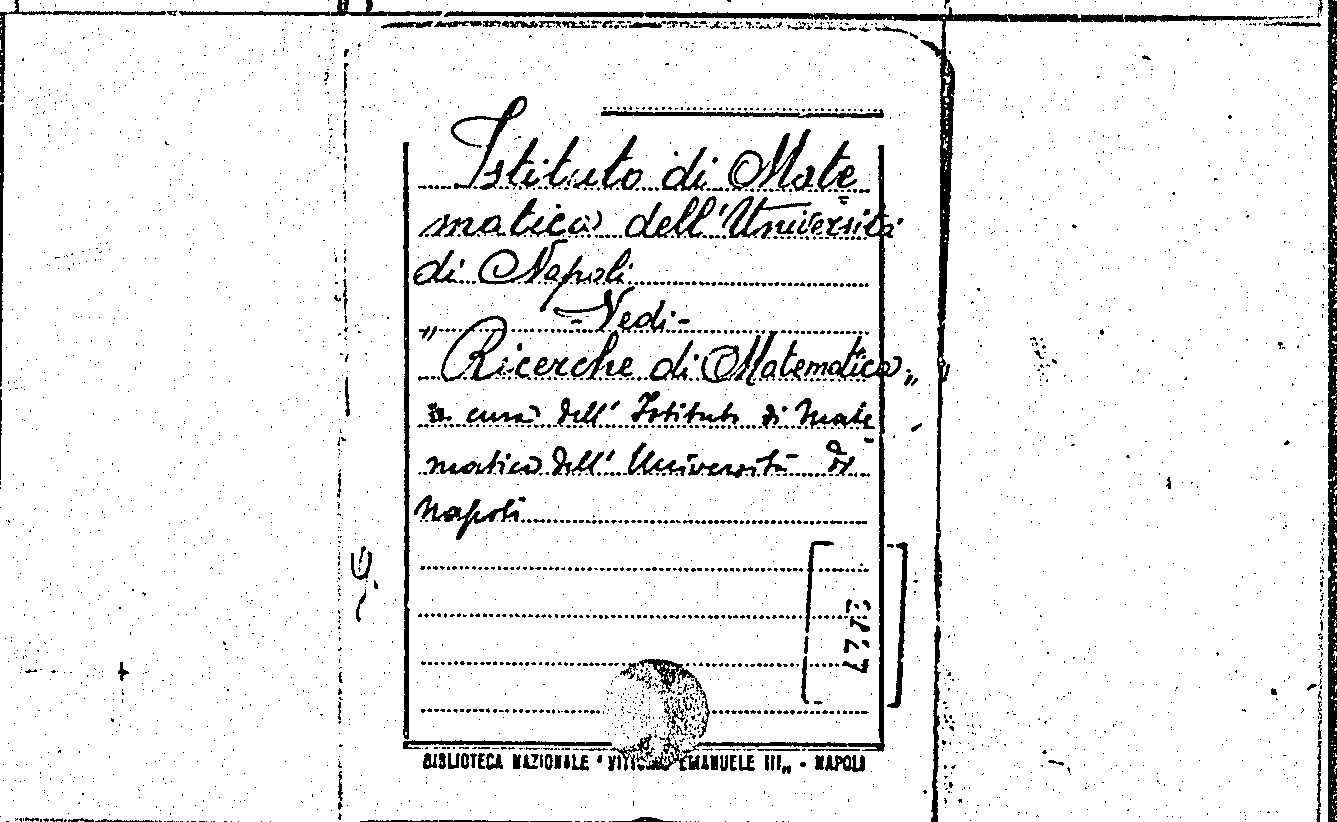 Istituto di Mate
matica dell'Università
di Napoli
-Vedi-
"Ricerche di Matematica"
a cura dell'Istituto di Mate
matica dell'Università di
Napoli
BIBLIOTECA NAZIONALE "VITTORIO EMANUELE III" - NAPOLI